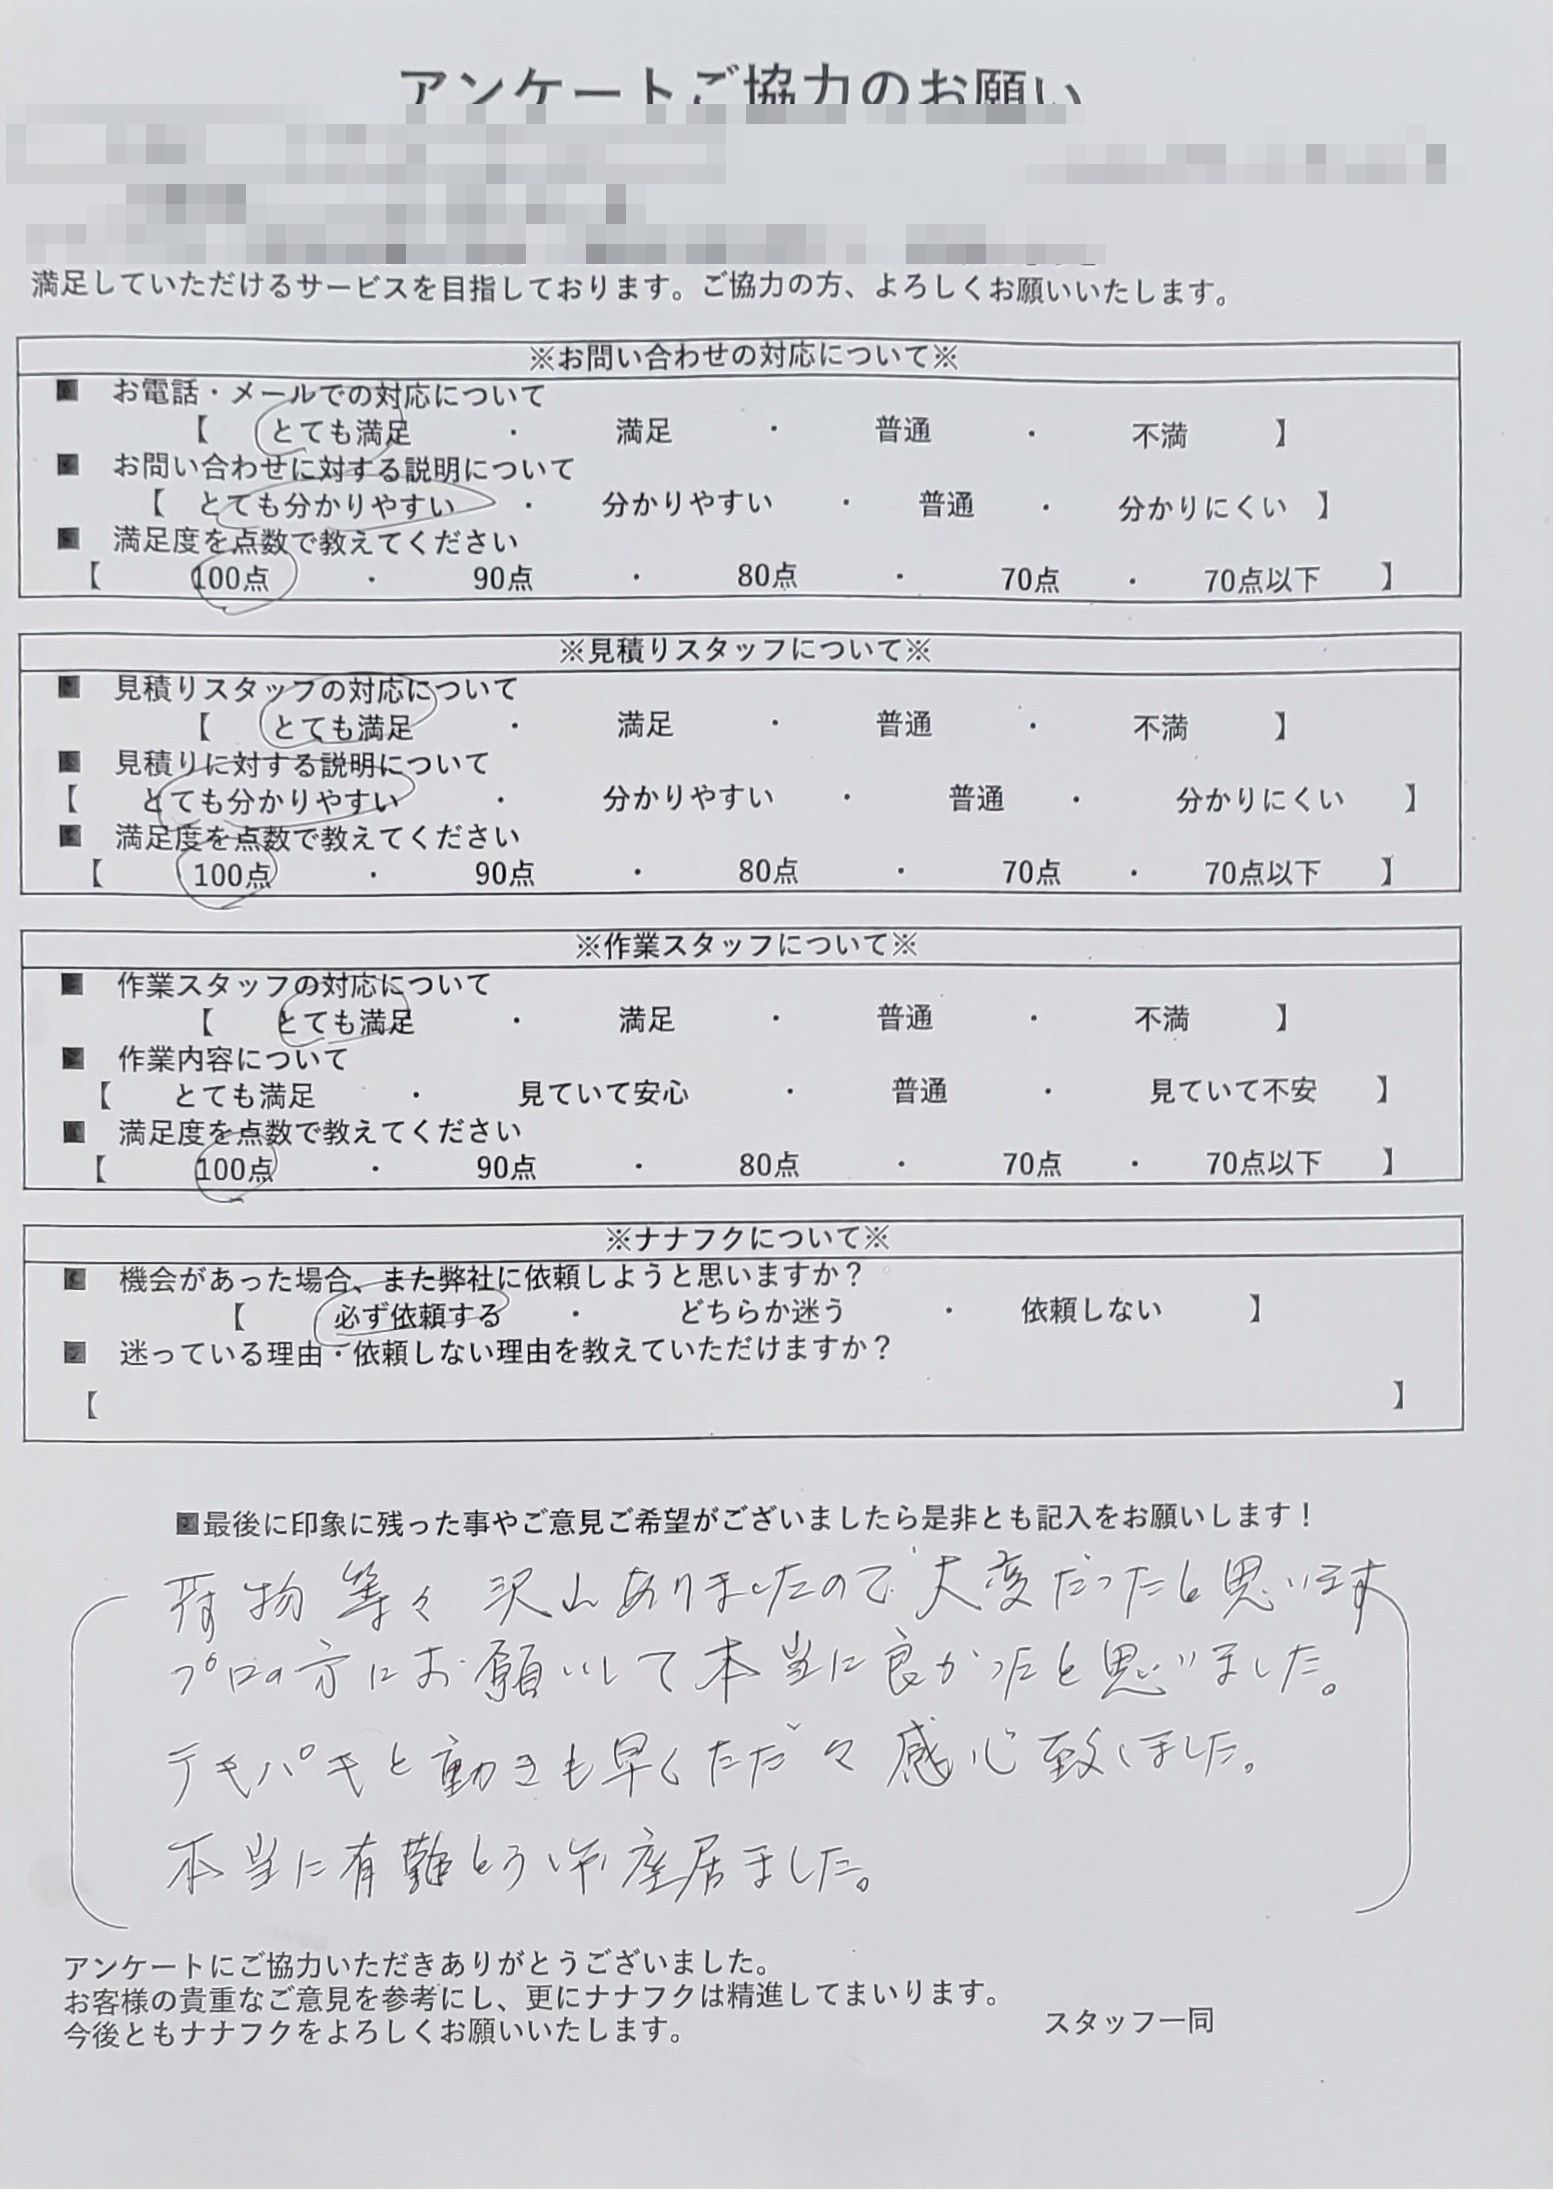 アンケートご協力のお願い
満足していただけるサービスを目指しております。ご協力の方、よろしくお願いいたします。
※お問い合わせの対応について※
■ お電話・メールでの対応について
【 とても満足 ・ 満足 ・ 普通 ・ 不満 】
■ お問い合わせに対する説明について
【 とても分かりやすい ・ 分かりやすい ・ 普通 ・ 分かりにくい 】
■ 満足度を点数で教えてください
【 100点 ・ 90点 ・ 80点 ・ 70点 ・ 70点以下 】
※見積りスタッフについて※
■ 見積りスタッフの対応について
【 とても満足 ・ 満足 ・ 普通 ・ 不満 】
■ 見積りに対する説明について
【 とても分かりやすい ・ 分かりやすい ・ 普通 ・ 分かりにくい 】
■ 満足度を点数で教えてください
【 100点 ・ 90点 ・ 80点 ・ 70点 ・ 70点以下 】
※作業スタッフについて※
■ 作業スタッフの対応について
【 とても満足 ・ 満足 ・ 普通 ・ 不満 】
■ 作業内容について
【 とても満足 ・ 見ていて安心 ・ 普通 ・ 見ていて不安 】
■ 満足度を点数で教えてください
【 100点 ・ 90点 ・ 80点 ・ 70点 ・ 70点以下 】
※ナナフクについて※
■ 機会があった場合、また弊社に依頼しようと思いますか？
【 必ず依頼する ・ どちらか迷う ・ 依頼しない 】
■ 迷っている理由・依頼しない理由を教えていただけますか？
【 】
■最後に印象に残った事やご意見ご希望がございましたら是非とも記入をお願いします！
荷物等々沢山ありましたので大変だったと思います
プロの方にお願いして本当に良かったと思いました。
テキパキと動きも早くただ々感心致しました。
本当に有難とう御座居ました。
アンケートにご協力いただきありがとうございました。
お客様の貴重なご意見を参考にし、更にナナフクは精進してまいります。
今後ともナナフクをよろしくお願いいたします。
スタッフ一同